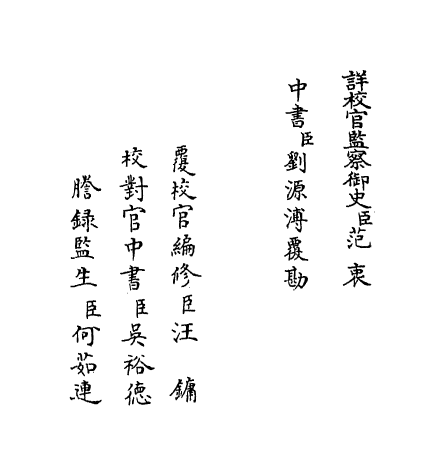 詳校官監察御史臣范衷
中書臣劉源溥覆勘
覆校官編修臣汪鏞
校對官中書臣吳裕德
謄録監生臣何茹連